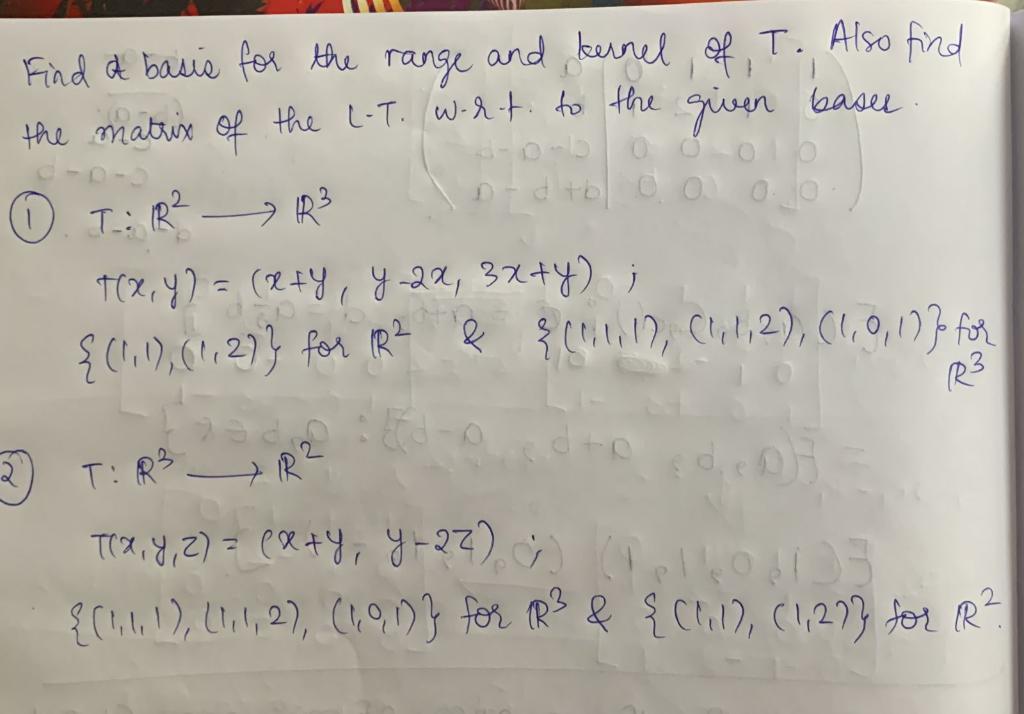 Find a basis for the range and kernel of T. Also find
the matrix of the L.T. w.r.t. to the given bases.
① T: ℝ² ⟶ ℝ³
T(x, y) = (x+y, y-2x, 3x+y) ;
{(1,1),(1,2)} for ℝ² & {(1,1,1), (1,1,2), (1,0,1)} for ℝ³
② T: ℝ³ ⟶ ℝ²
T(x,y,z) = (x+y, y-2z) ;
{(1,1,1), (1,1,2), (1,0,1)} for ℝ³ & {(1,1), (1,2)} for ℝ².